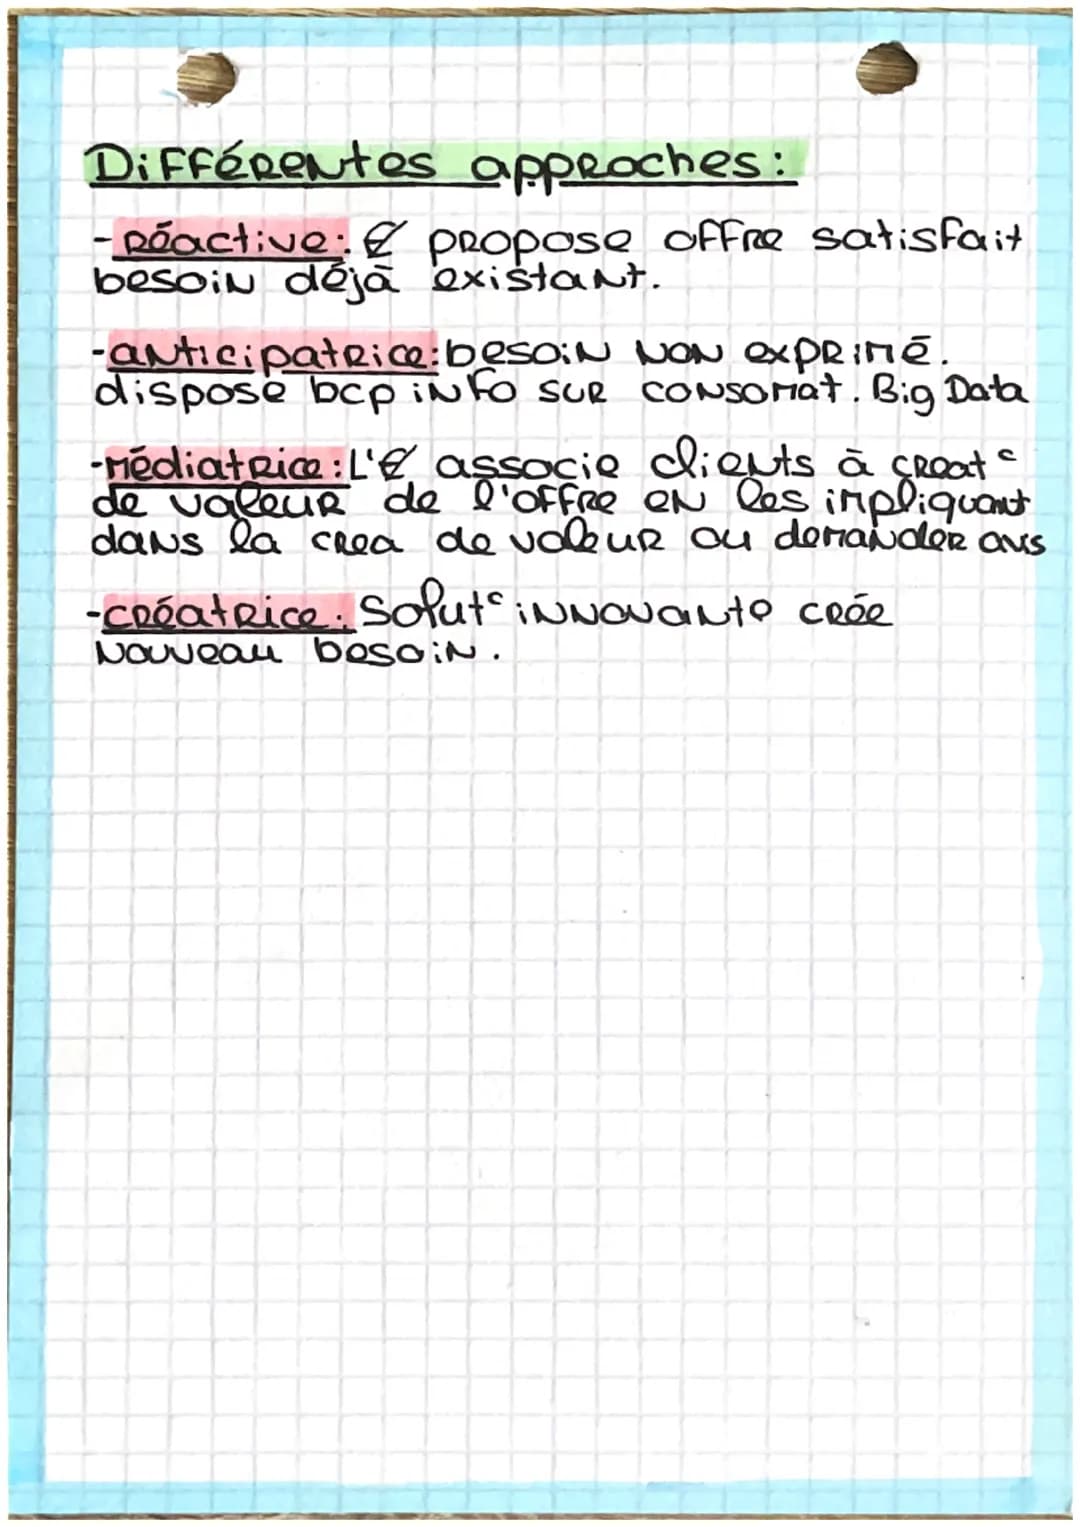 Différentes approches:
-Réactive: € propose offre satisfait
besoin déjà existant.
-anticipatrice: besoin non exprimé.
dispose bcp info sur consomat. Big Data
-Médiatrice: L'€ associe clients à creat°
de valeur de l'offre en les impliquant
dans la crea de valeur ou demander avis
-créatrice: Solut° innovante crée
nouveau besoin.